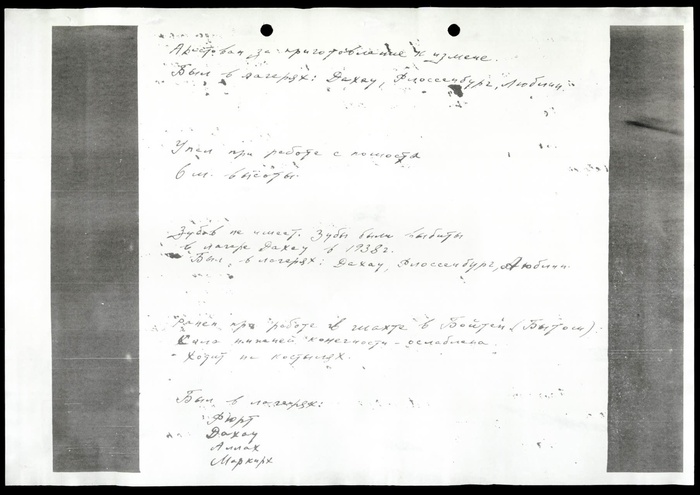 Арестован за приготовление к измене.
Был в лагерях: Дахау, Флоссенбург, Люблин.
Упал при работе с помоста
6 м. высоты.
Зубов не имеет. Зубы были выбиты
в лагере Дахау в 1938 г.
Был в лагерях: Дахау, Флоссенбург, Люблин.
Ранен при работе в шахте в Бойтен (Бытом).
Сила нижней конечности - ослаблена.
Ходит на костылях.
Был в лагерях:
Фюрт
Дахау
Аллах
Маркирх